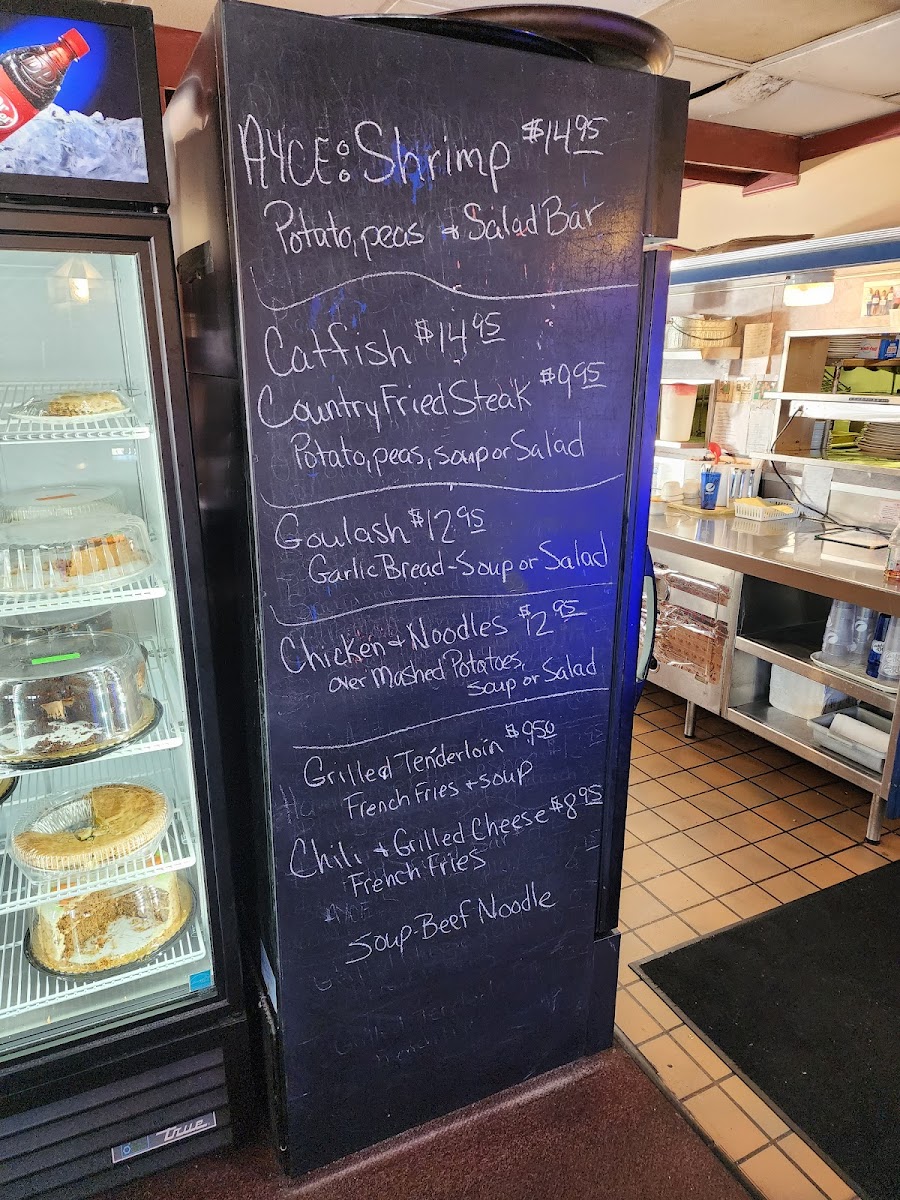 AYCE: Shrimp $14.95
Potato, peas & Salad Bar
Catfish $14.95
Country Fried Steak $9.95
Potato, peas, soup or Salad
Goulash $12.95
Garlic Bread - Soup or Salad
Chicken & Noodles $12.95
over Mashed Potatoes,
soup or Salad
Grilled Tenderloin $9.50
French Fries + soup
Chili & Grilled Cheese $8.95
French Fries
Soup - Beef Noodle
True